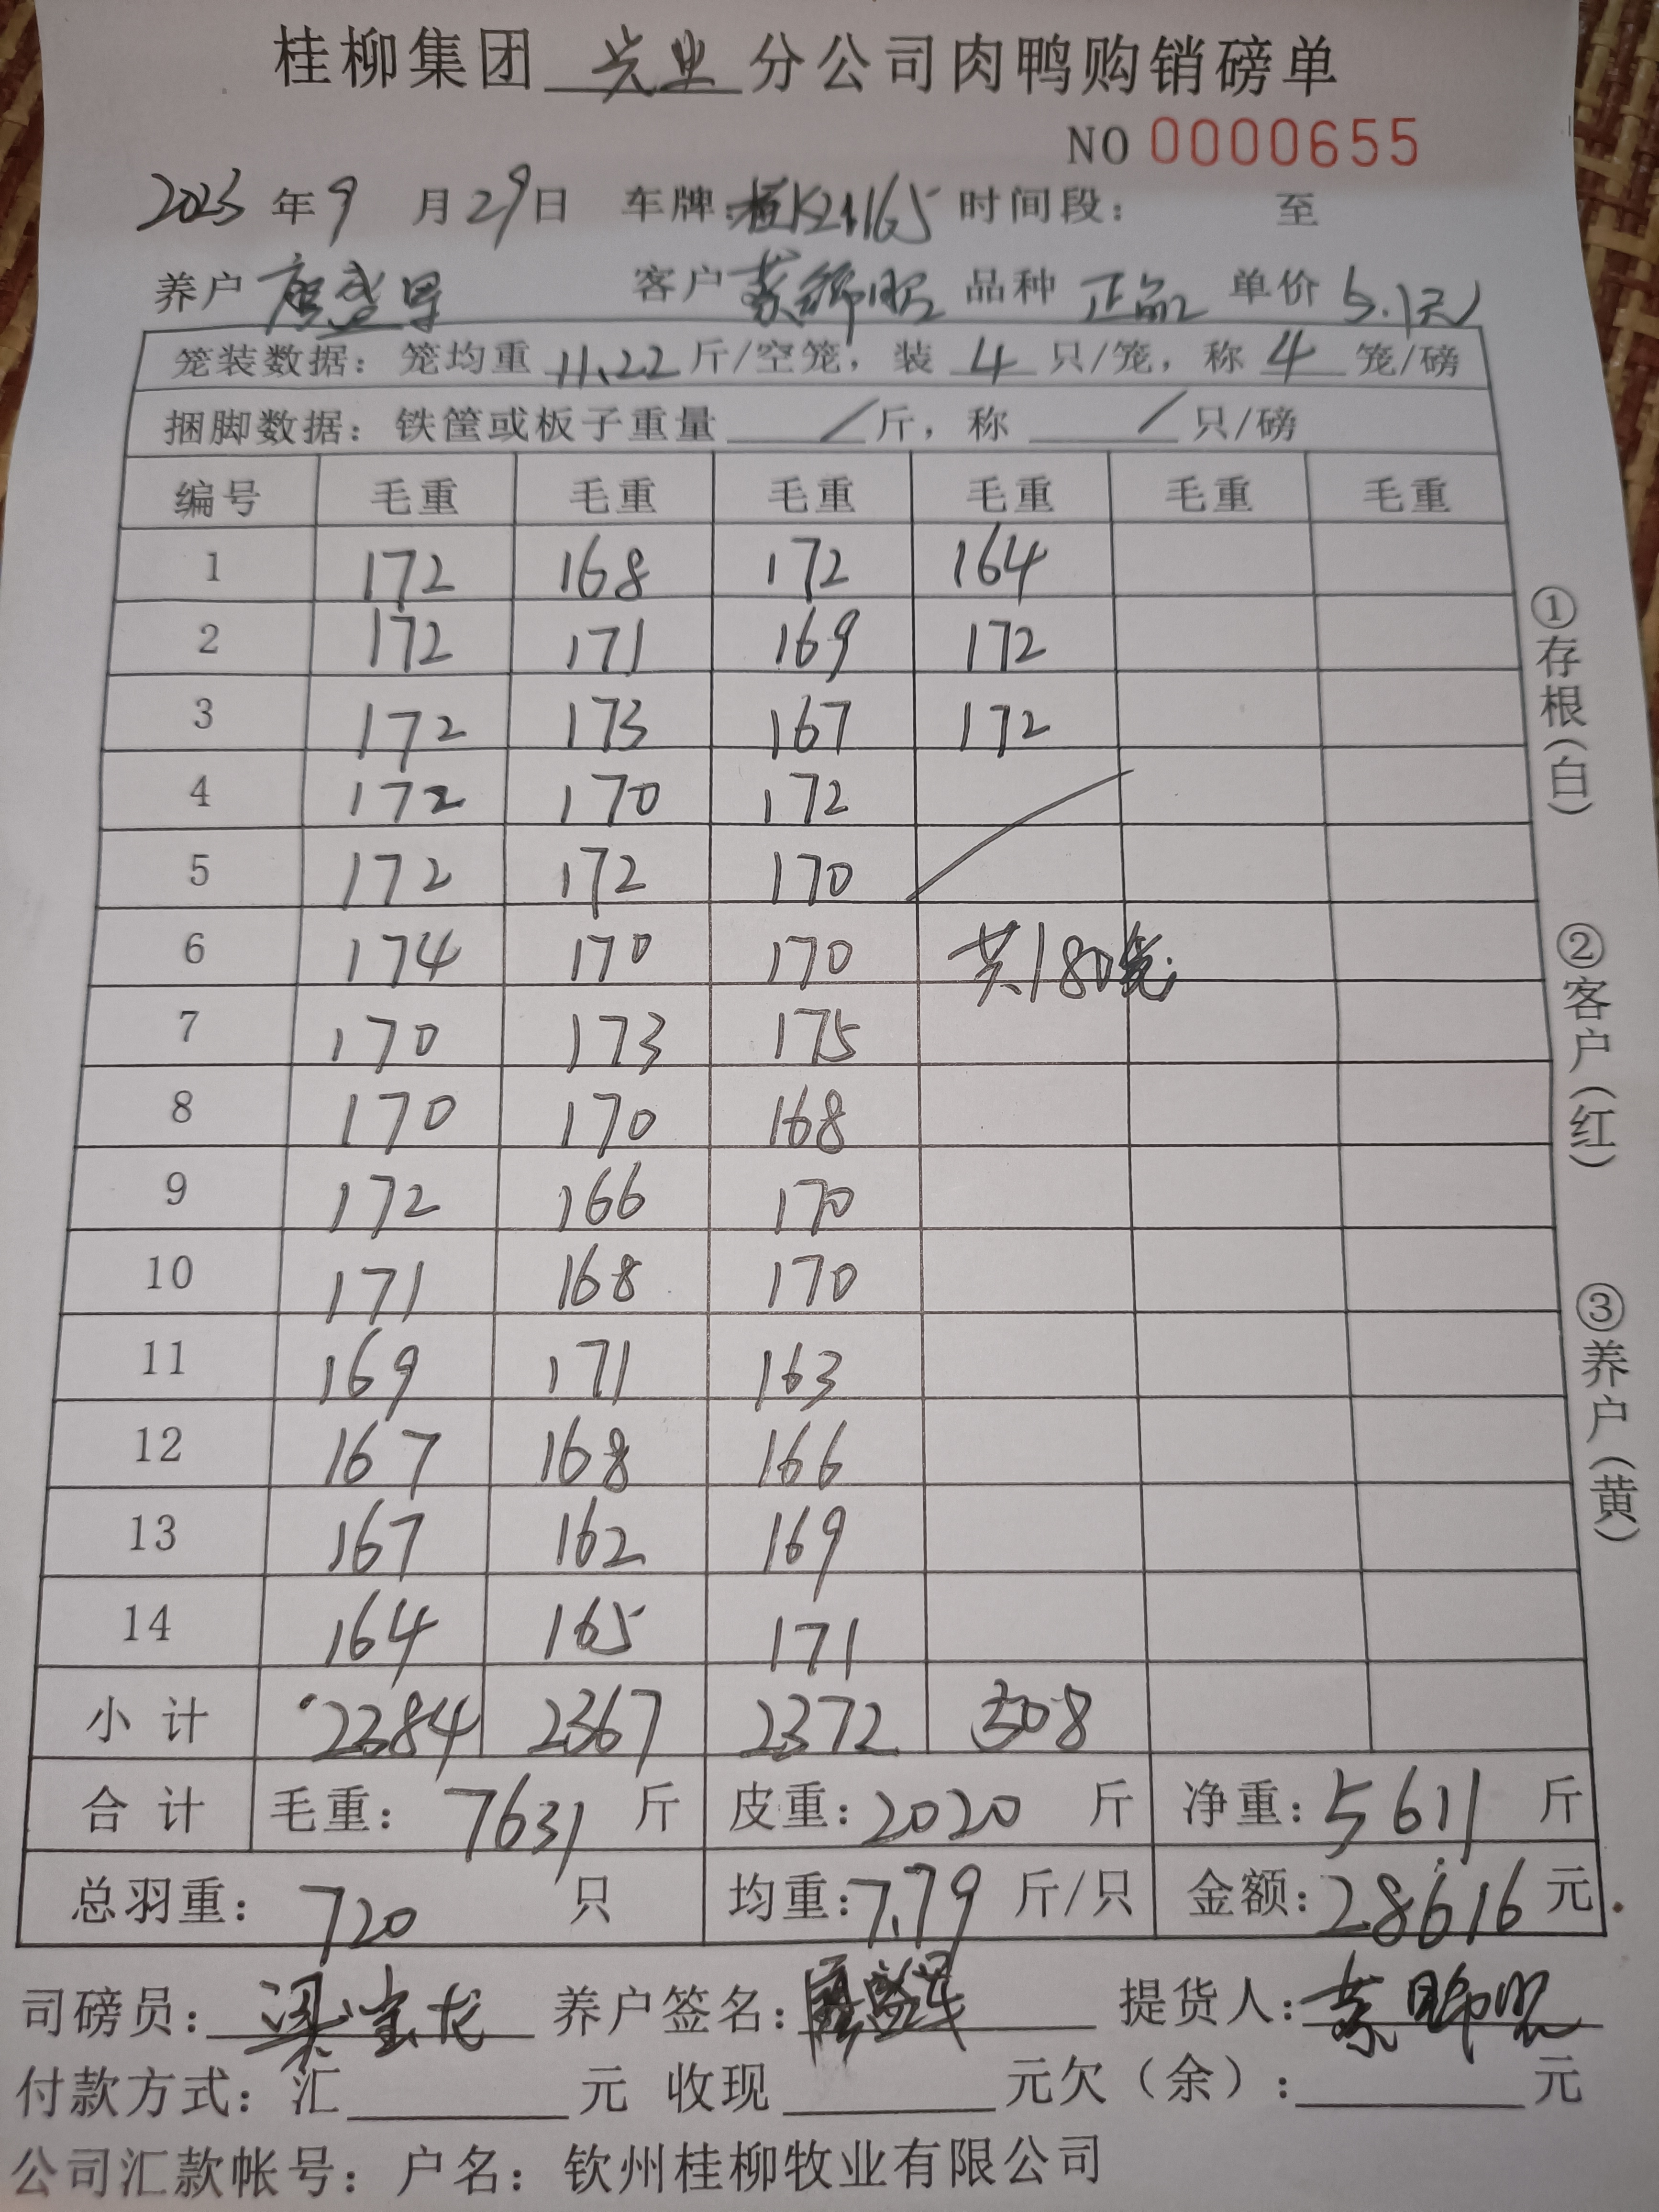 桂柳集团 兴业 分公司肉鸭购销磅单
NO 0000655
2023年9月29日 车牌:桂K21165 时间段: 至
养户 客户 品种 正品 单价 5.1元
笼装数据:笼均重 11.22 斤/空笼,装 4 只/笼,称 4 笼/磅
捆脚数据:铁筐或板子重量 / 斤,称 / 只/磅
编号 毛重 毛重 毛重 毛重 毛重 毛重
1 172 168 172 164
2 172 171 169 172
3 172 173 167 172
4 172 170 172
5 172 172 170
6 174 170 170 共180笼
7 170 173 175
8 170 170 168
9 172 166 170
10 171 168 170
11 169 171 163
12 167 168 166
13 167 162 169
14 164 165 171
小计 2384 2367 2372 508
合计 毛重:7631斤 皮重:2020斤 净重:5611斤
总羽重:720只 均重:7.79斤/只 金额:28616元
司磅员:梁宝龙 养户签名: 提货人:
付款方式:汇 元 收现 元欠(余): 元
公司汇款帐号:户名:钦州桂柳牧业有限公司
①存根(白) ②客户(红) ③养户(黄)